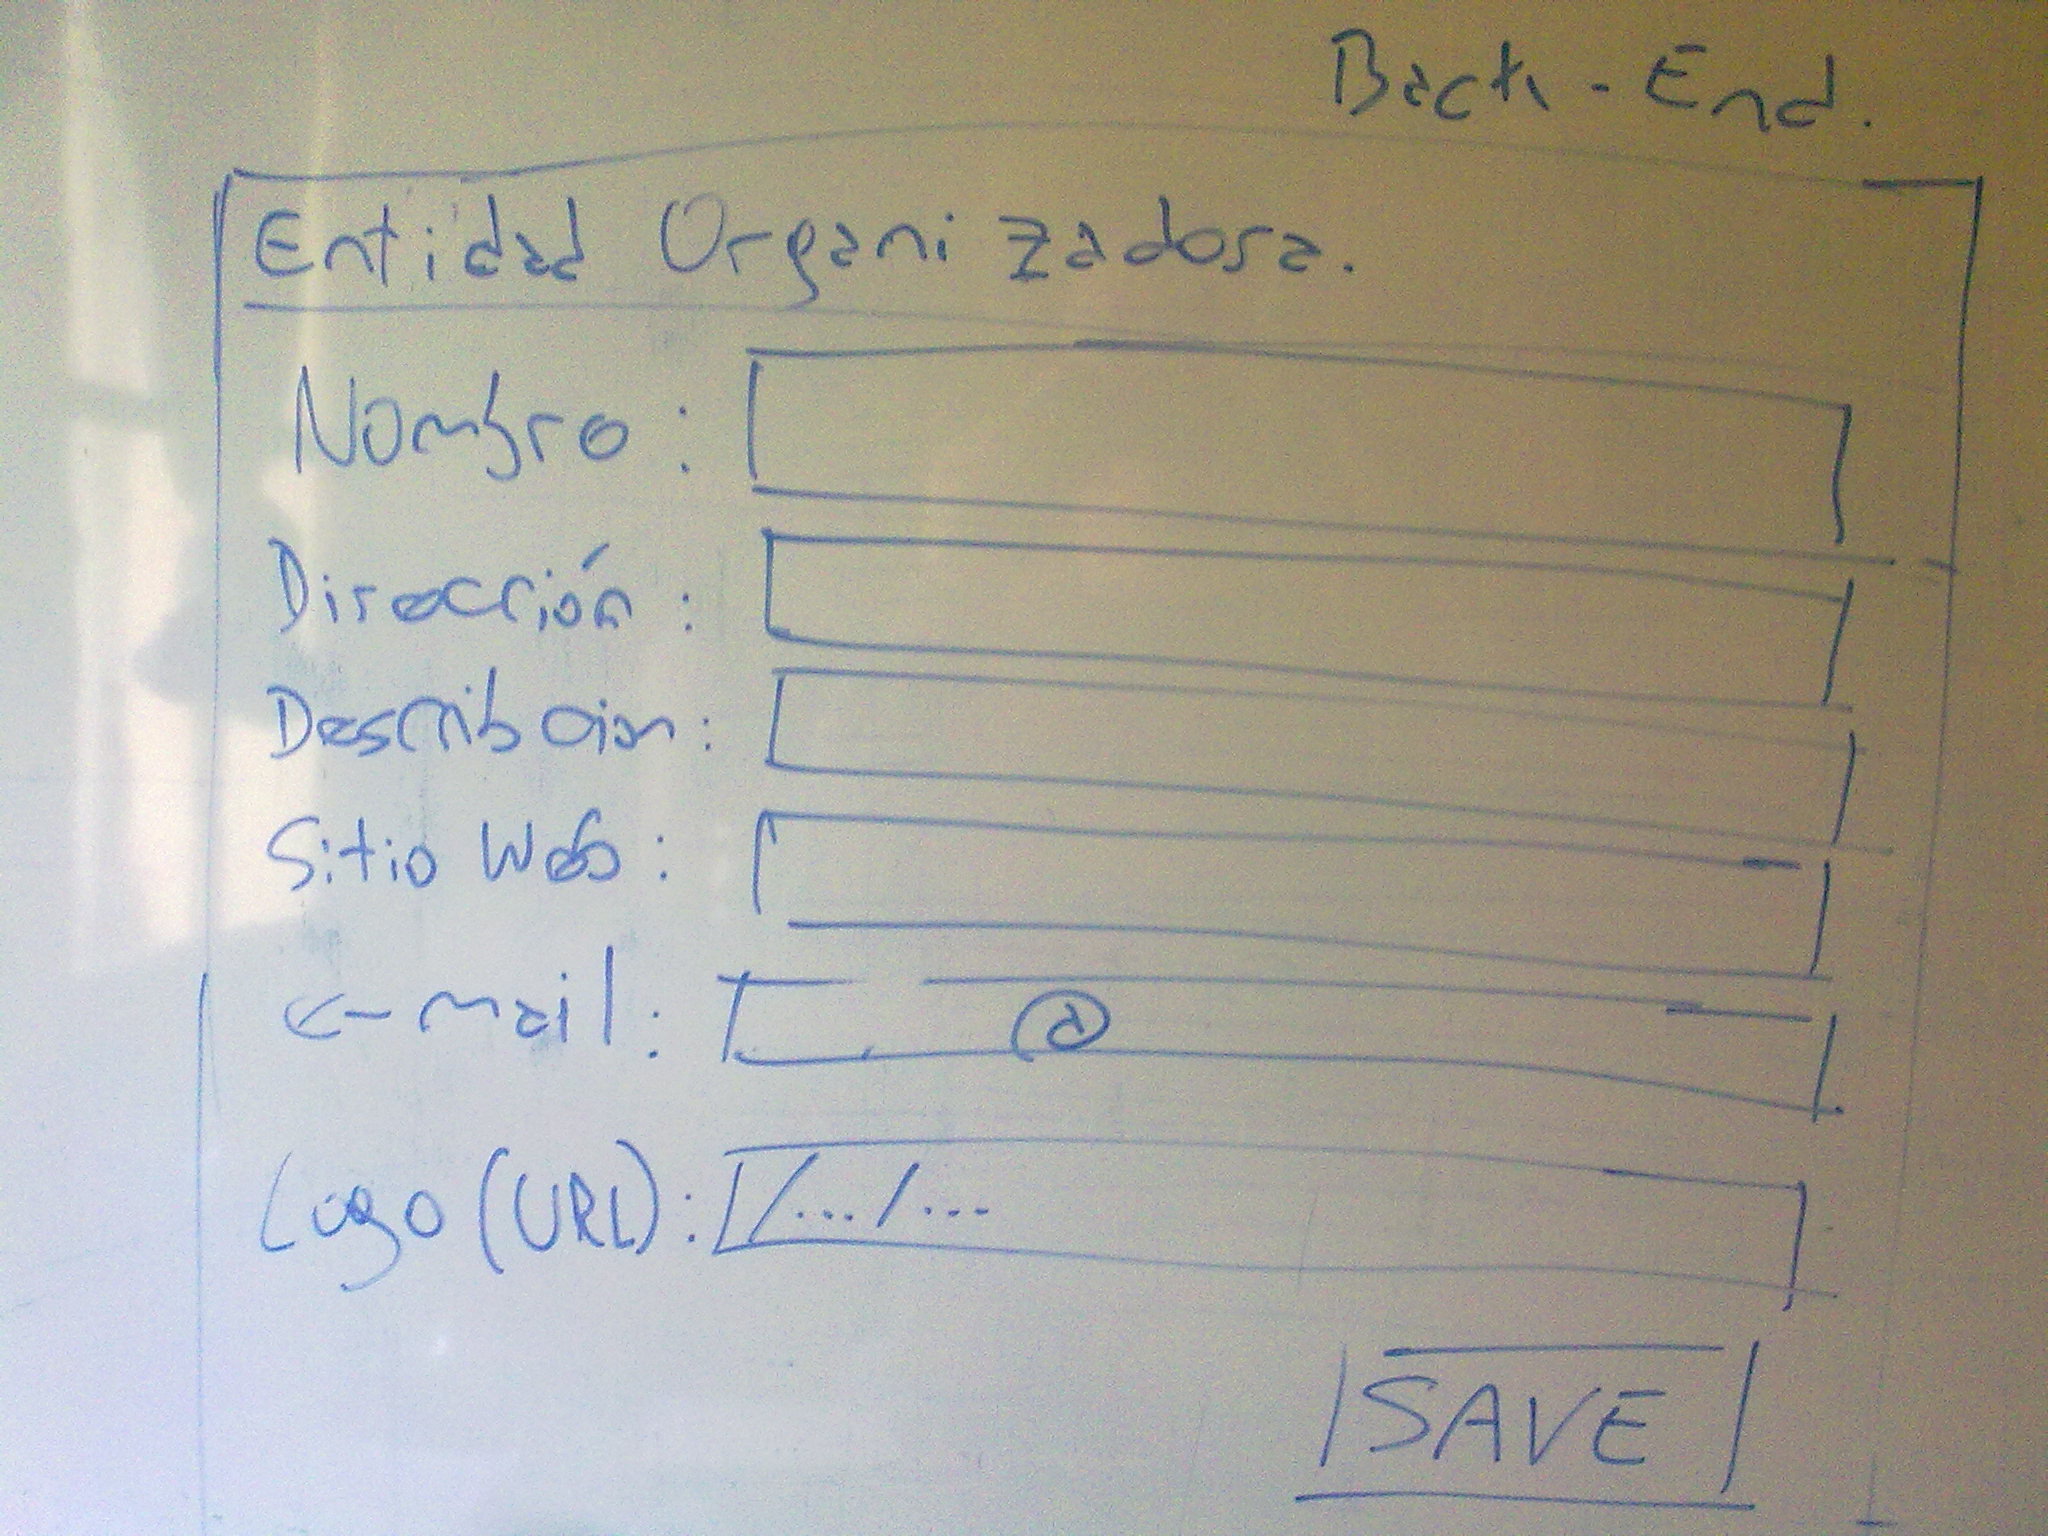 Back-End.
Entidad Organizadora.
Nombre :
Dirección :
Describcion :
Sitio Web :
e-mail : @
Logo (URL) : /.../...
SAVE